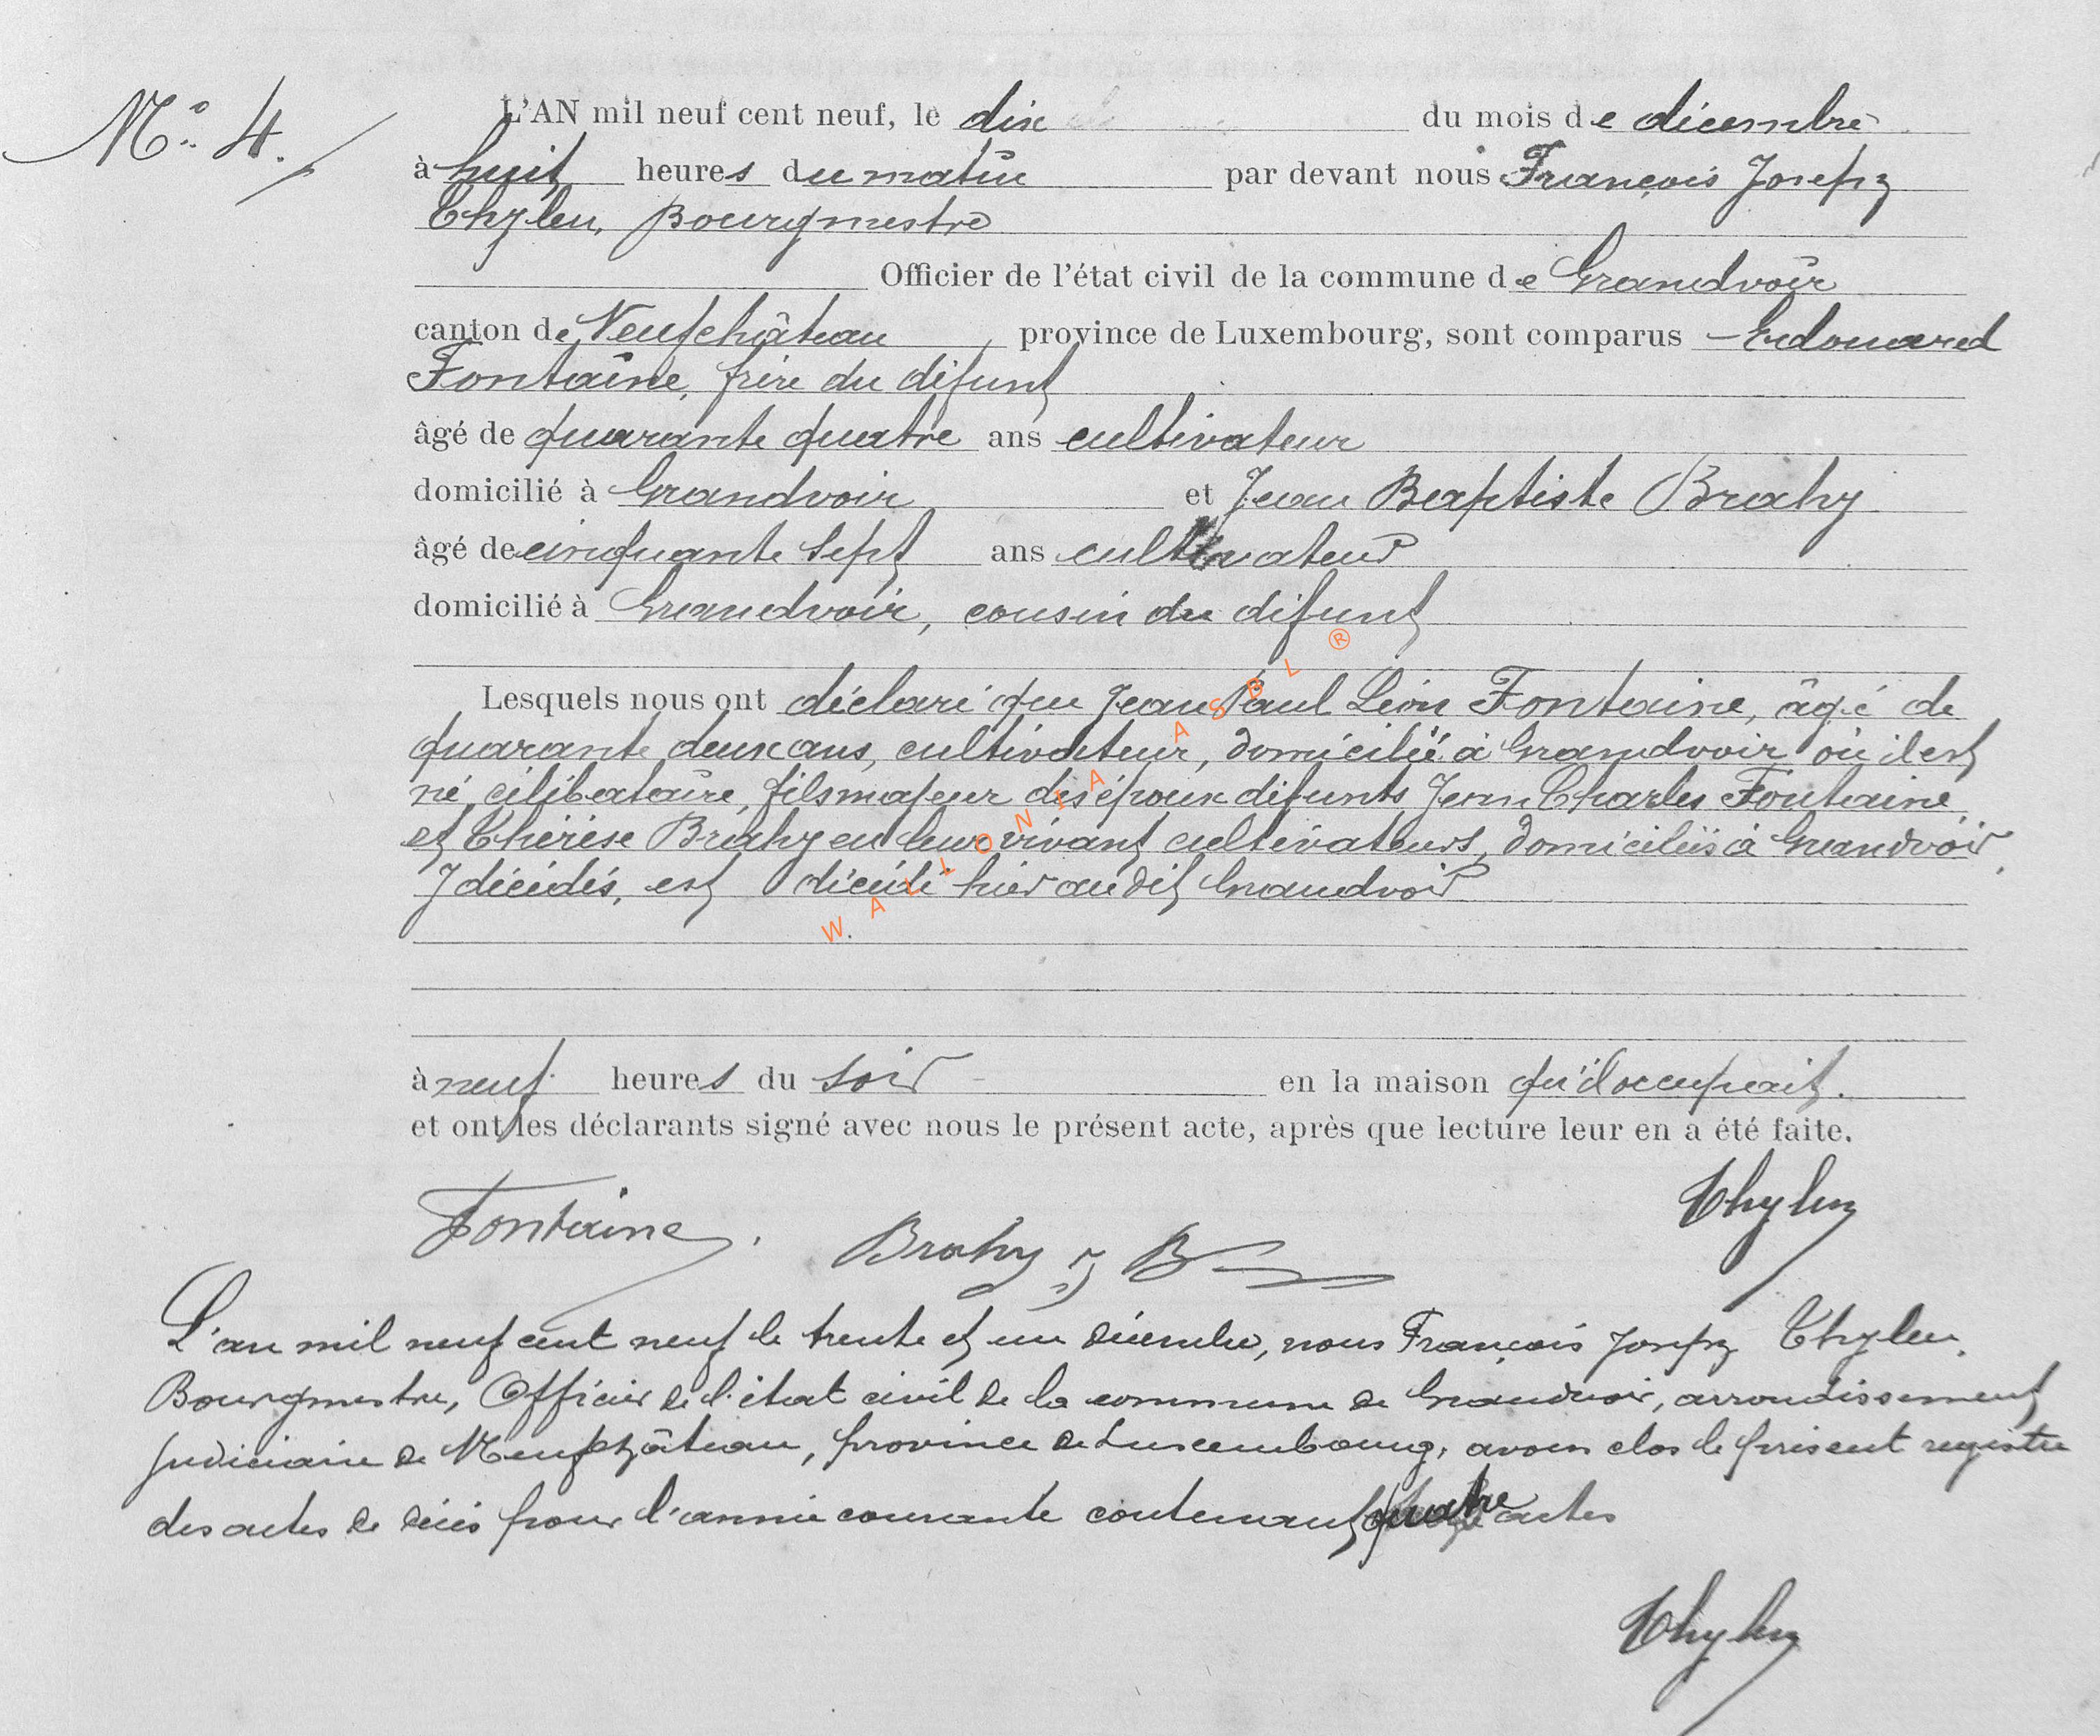 N° 4.
L'AN mil neuf cent neuf, le dix du mois de décembre
à huit heures du matin par devant nous François Joseph
Thylen, Bourgmestre
Officier de l'état civil de la commune de Grandvoir
canton de Neufchâteau province de Luxembourg, sont comparus Edouard
Fontaine, frère du défunt
âgé de quarante quatre ans cultivateur
domicilié à Grandvoir et Jean Baptiste Brahy
âgé de cinquante sept ans cultivateur
domicilié à Grandvoir, cousin du défunt
Lesquels nous ont déclaré que Jean Paul Léon Fontaine, âgé de
quarante deux ans, cultivateur, domicilié à Grandvoir où il est
né, célibataire, fils majeur des époux défunts Jean Charles Fontaine
et Thérèse Brahy en leur vivant cultivateurs, domiciliés à Grandvoir,
y décédés, est décédé hier au dit Grandvoir
WALLONIA ASBL ®
à neuf heures du soir en la maison qu'il occupait.
et ont les déclarants signé avec nous le présent acte, après que lecture leur en a été faite.
Thylen
Fontaine. Brahy J B
L'an mil neuf cent neuf le trente et un décembre, nous François Joseph Thylen,
Bourgmestre, Officier de l'état civil de la commune de Grandvoir, arrondissement
judiciaire de Neufchâteau, province de Luxembourg, avons clos le présent registre
des actes de décès pour l'année courante contenant quatre actes
Thylen